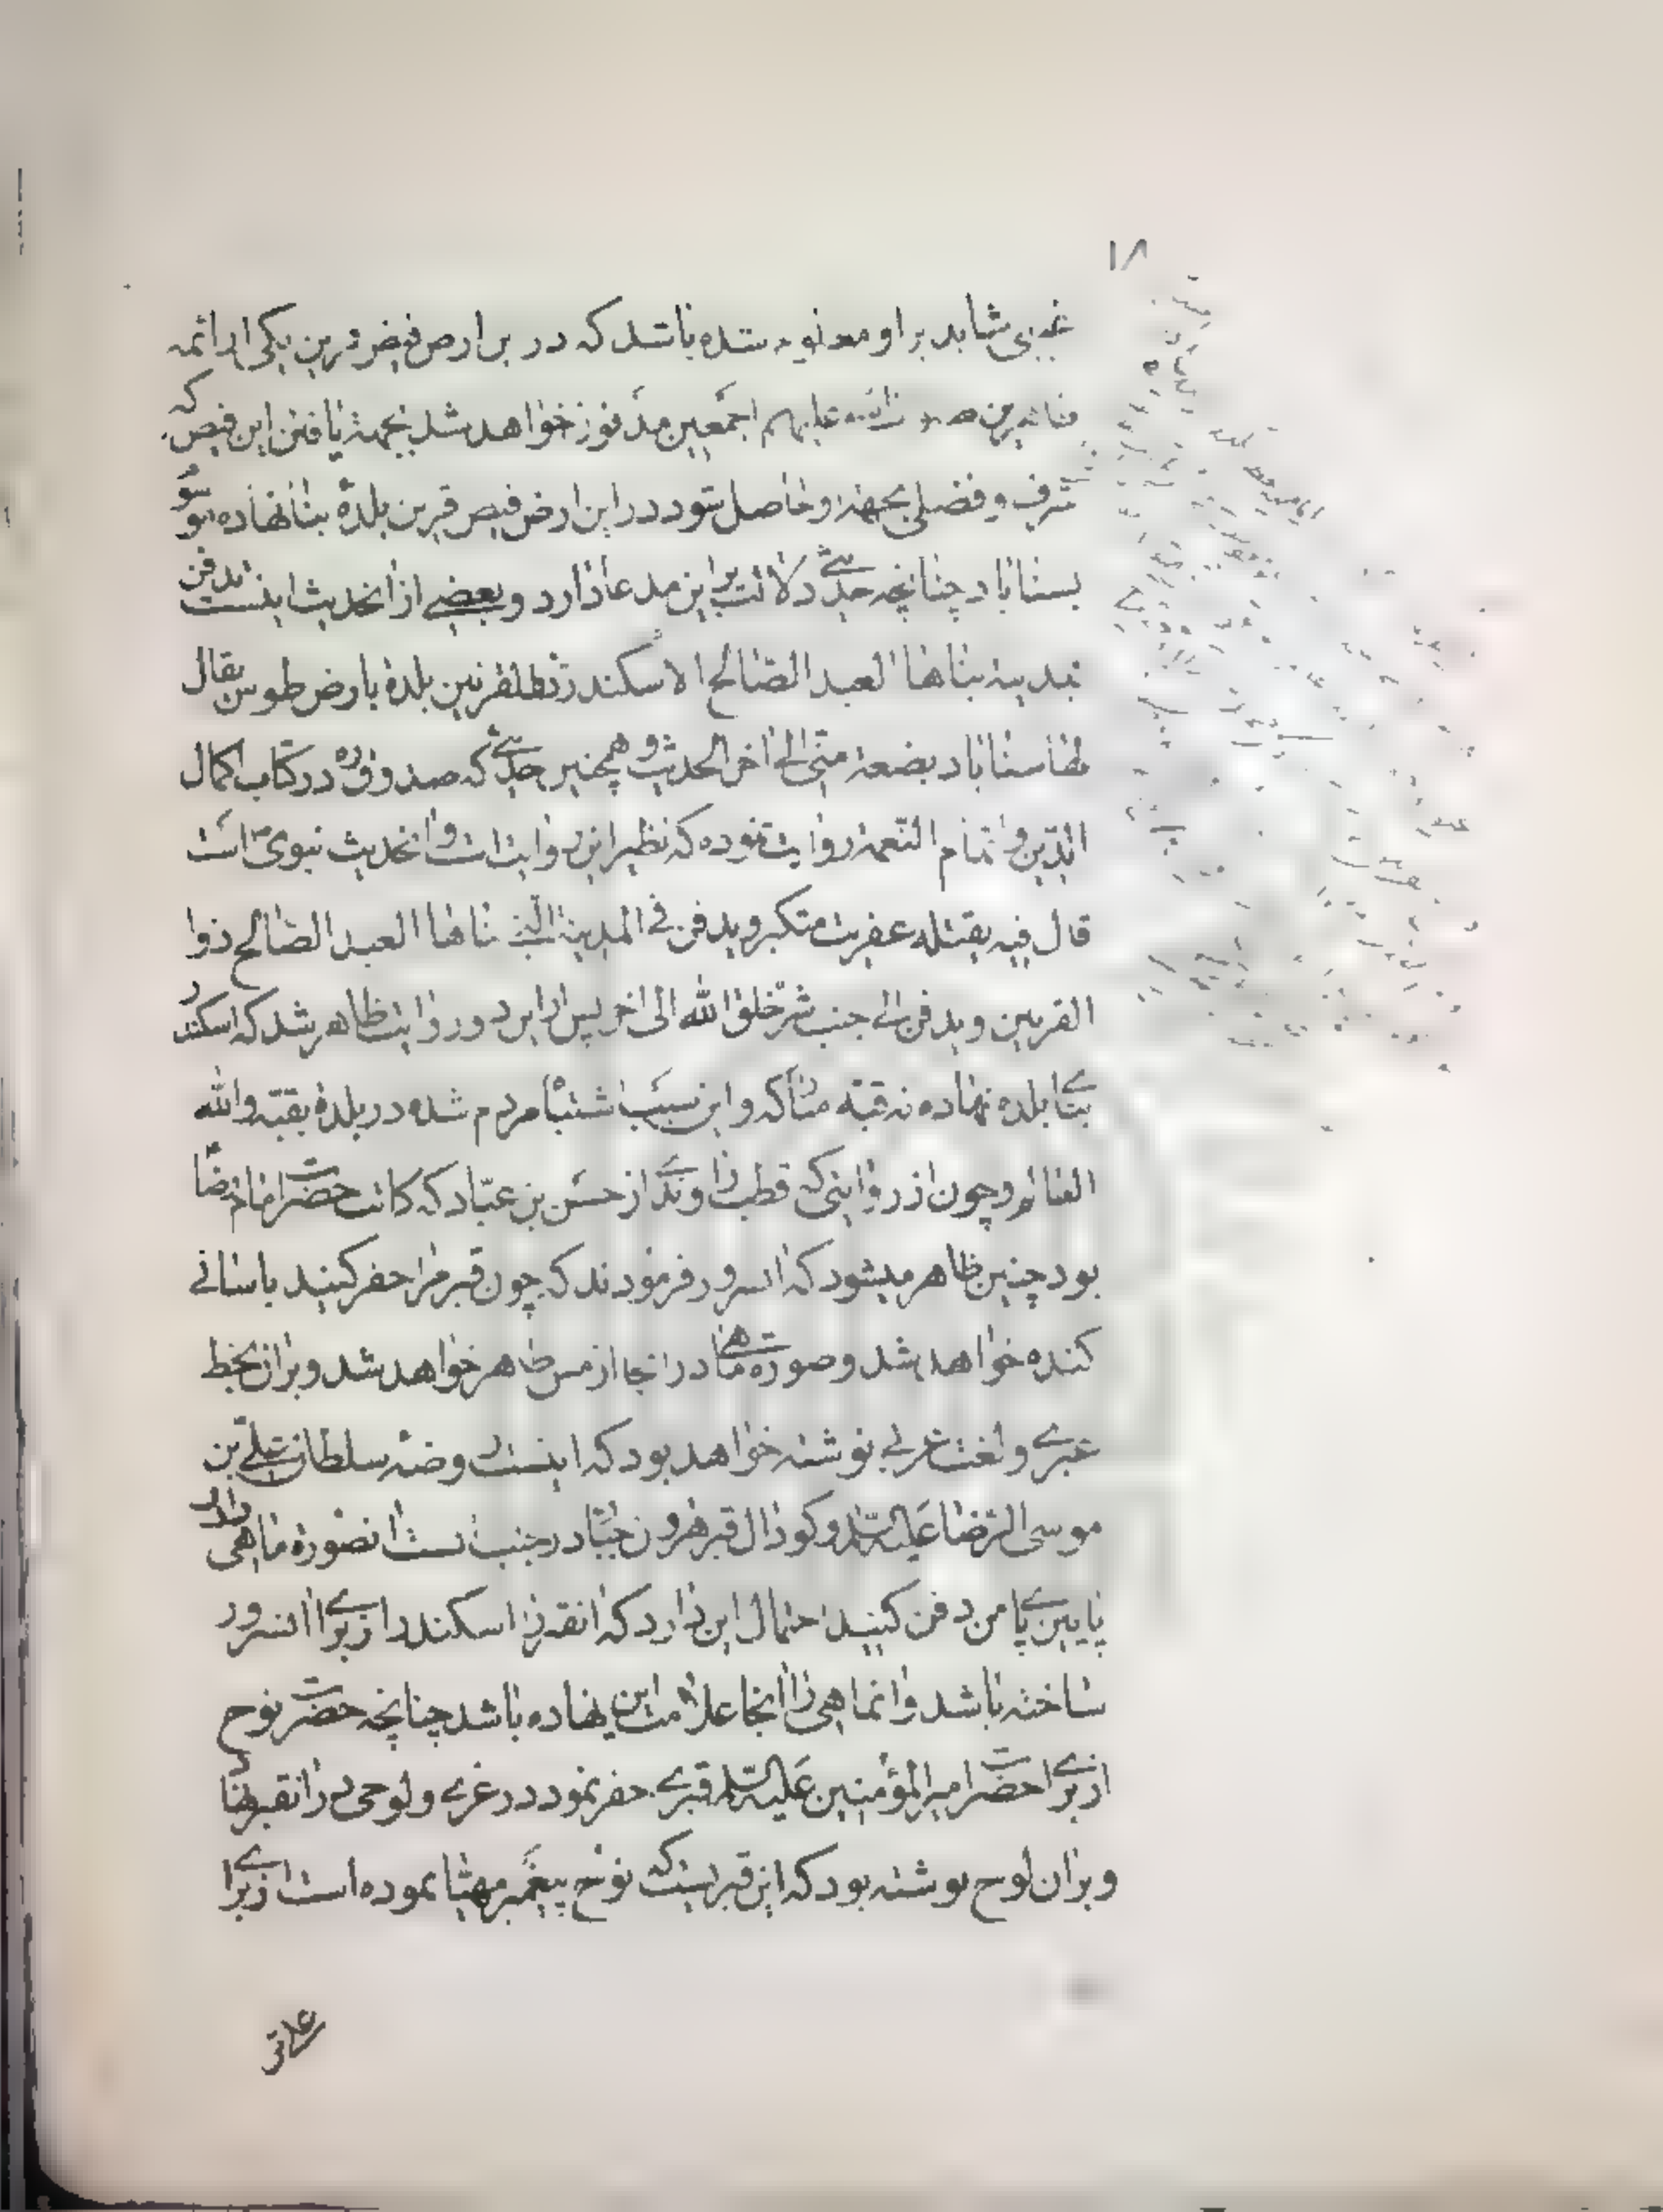 ۱۸
غیبی شاید بر او معلوم شده باشد که در این ارض فیض قرین یکی از ائمه
صلوات الله علیهم اجمعین مدفون خواهد شد بجهة یافتن این فیض که
شرف و فضلی بجهة او حاصل شود در این ارض فیض قرین بلدهٔ بنا نهاده موسوم
بسناباد چنانچه حدیثے دلالت بر این مدعا دارد و بعضے از انحدیث اینست تدفن
بمدینة بناها العبد الصالح الاسکندر ذوالقرنین بلدة بارض طوس یقال
لها سناباد بضعة منّی الی اخر الحدیث و همچنین حدیثے که صدوق ره در کتاب اکمال
الدّین و اتمام النّعمة روایت نموده که نظیر این روایت است و انحدیث نبوی است
قال فیه یقتله عفریت متکبر و یدفن فی المدینة الّتی بناها العبد الصالح ذوا
القرنین و یدفن الی جنب شرّ خلق الله الی اخر پس از این دو روایت ظاهر شد که اسکندر
بنای بلده نهاده نه قبّه مبارکه و این سبب اشتباه مردم شده در بلده بقبّه والله
العالم و چون از روایتی که قطب راوندے از حسن بن عبّاد که کاتب حضرت امام رضا
بود چنین ظاهر میشود که انسرور فرمودند که چون قبر مرا حفر کنید باسانے
کنده خواهد شد و صورة ماهے در انجا از مس ظاهر خواهد شد و بران بخط
عبرے و لغت عربے نوشته خواهد بود که اینست روضهٔ سلطان علے بن
موسی الرّضا علیه السّلام و گودال قبر هرون جبّار در جنب انست انصورة ماهی را در
پایین پاے من دفن کنید احتمال این دارد که انقبر را اسکندر از براے انسرور
ساخته باشد و انماهی را انجا علامت این نهاده باشد چنانچه حضرت نوح
از براے حضرت امیر المؤمنین علیه السّلام قبرے حفر نمود در غرے و لوحی در انقبر نهاد
و بران لوح نوشته بود که این قبریست که نوح پیغمبر مهیّا نموده است از براے